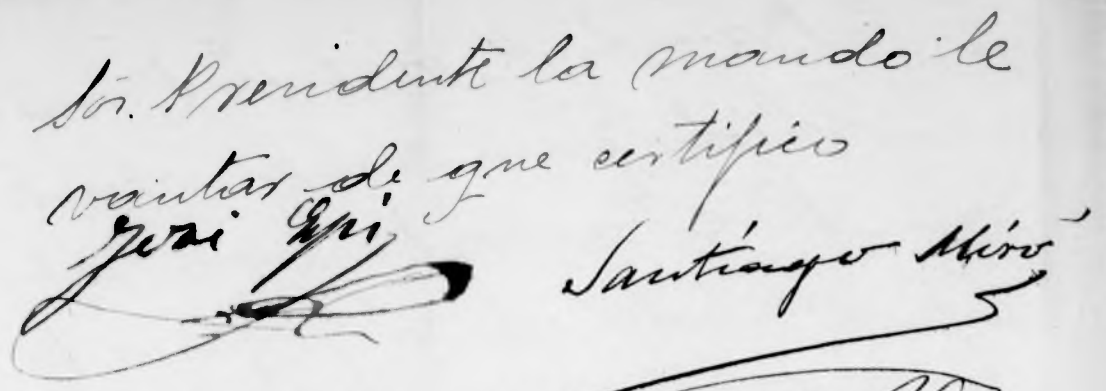 Sór. Presidente la mando le
vantar de que certifico
José Epi Santiago Miró